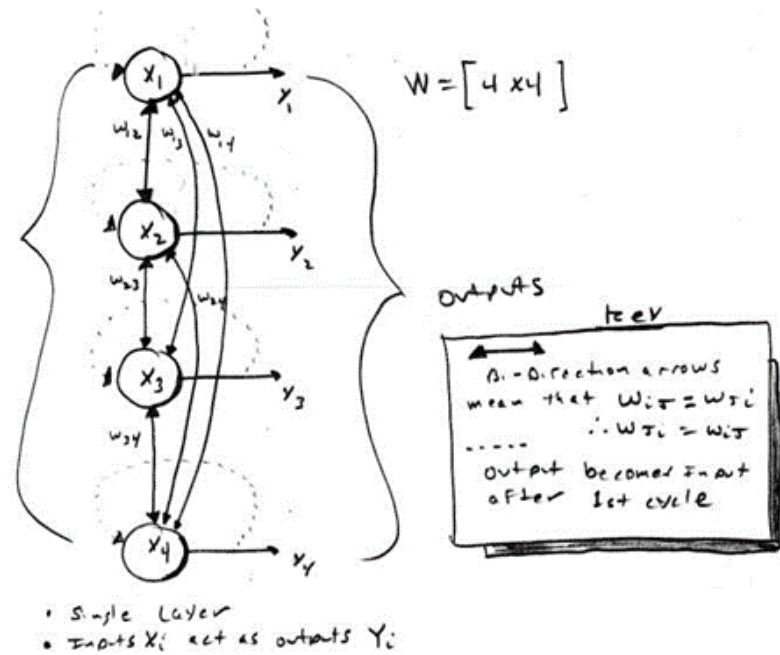 X1
Y1
W = [ 4 x4 ]
W12
W13
W14
X2
Y2
W23
W24
Outputs
X3
Y3
W34
X4
Y4
Key
Bi-Direction arrows
mean that Wij = Wji
∴ Wji = Wij
Output becomes Input
after 1st cycle
• Single Layer
• Inputs Xi act as outputs Yi